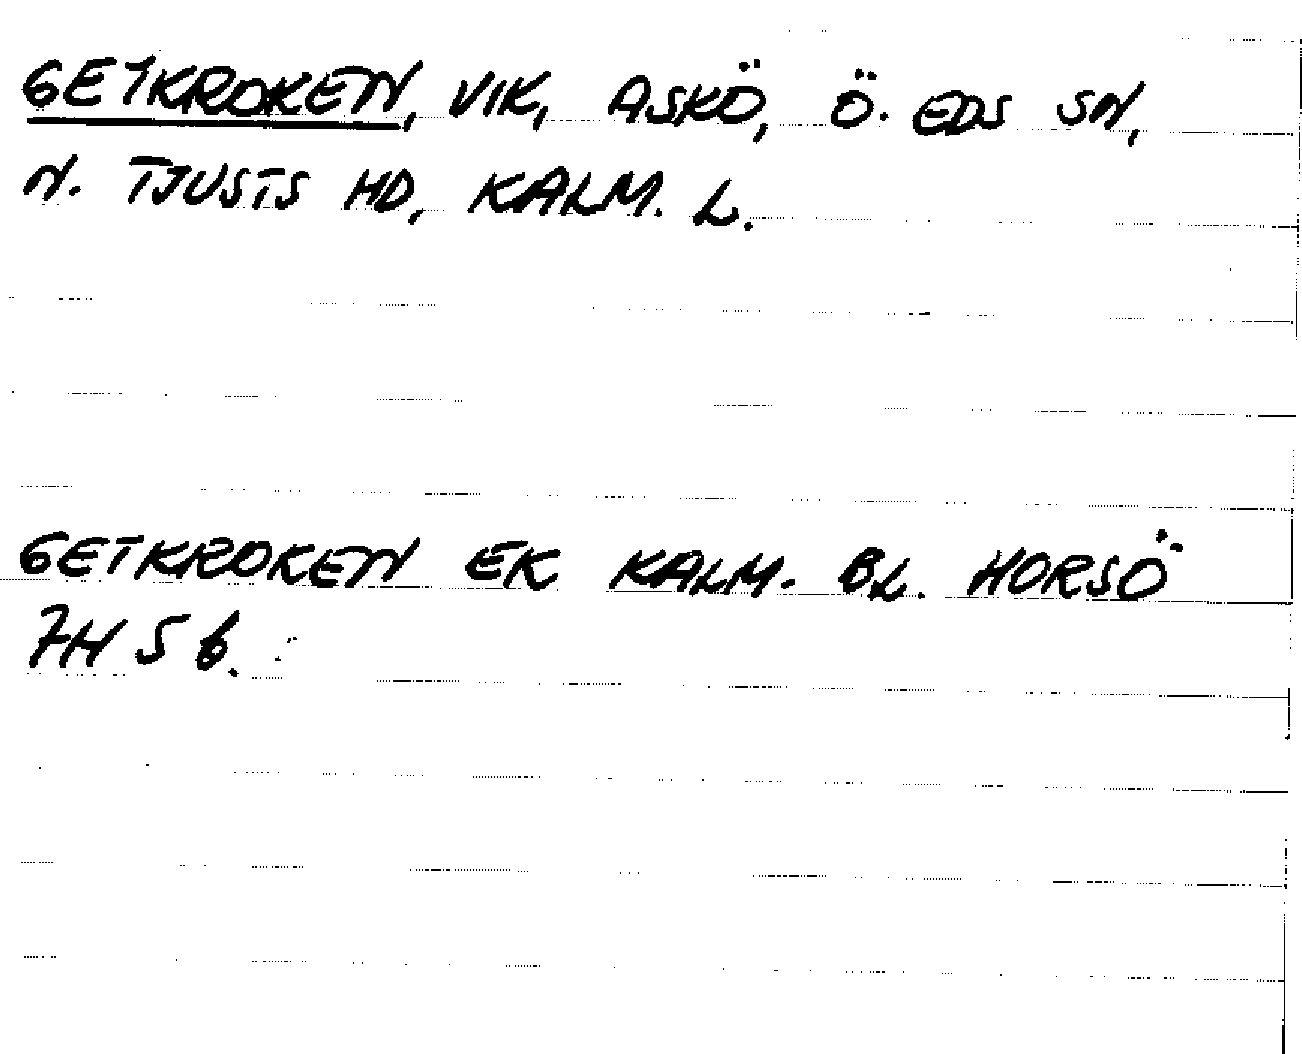 GETKROKEN, VIK, ASKÖ, Ö. EDS SN,
N. TJUSTS HD, KALM. L.
GETKROKEN EK KALM. BL. HORSÖ
7H 5 b.